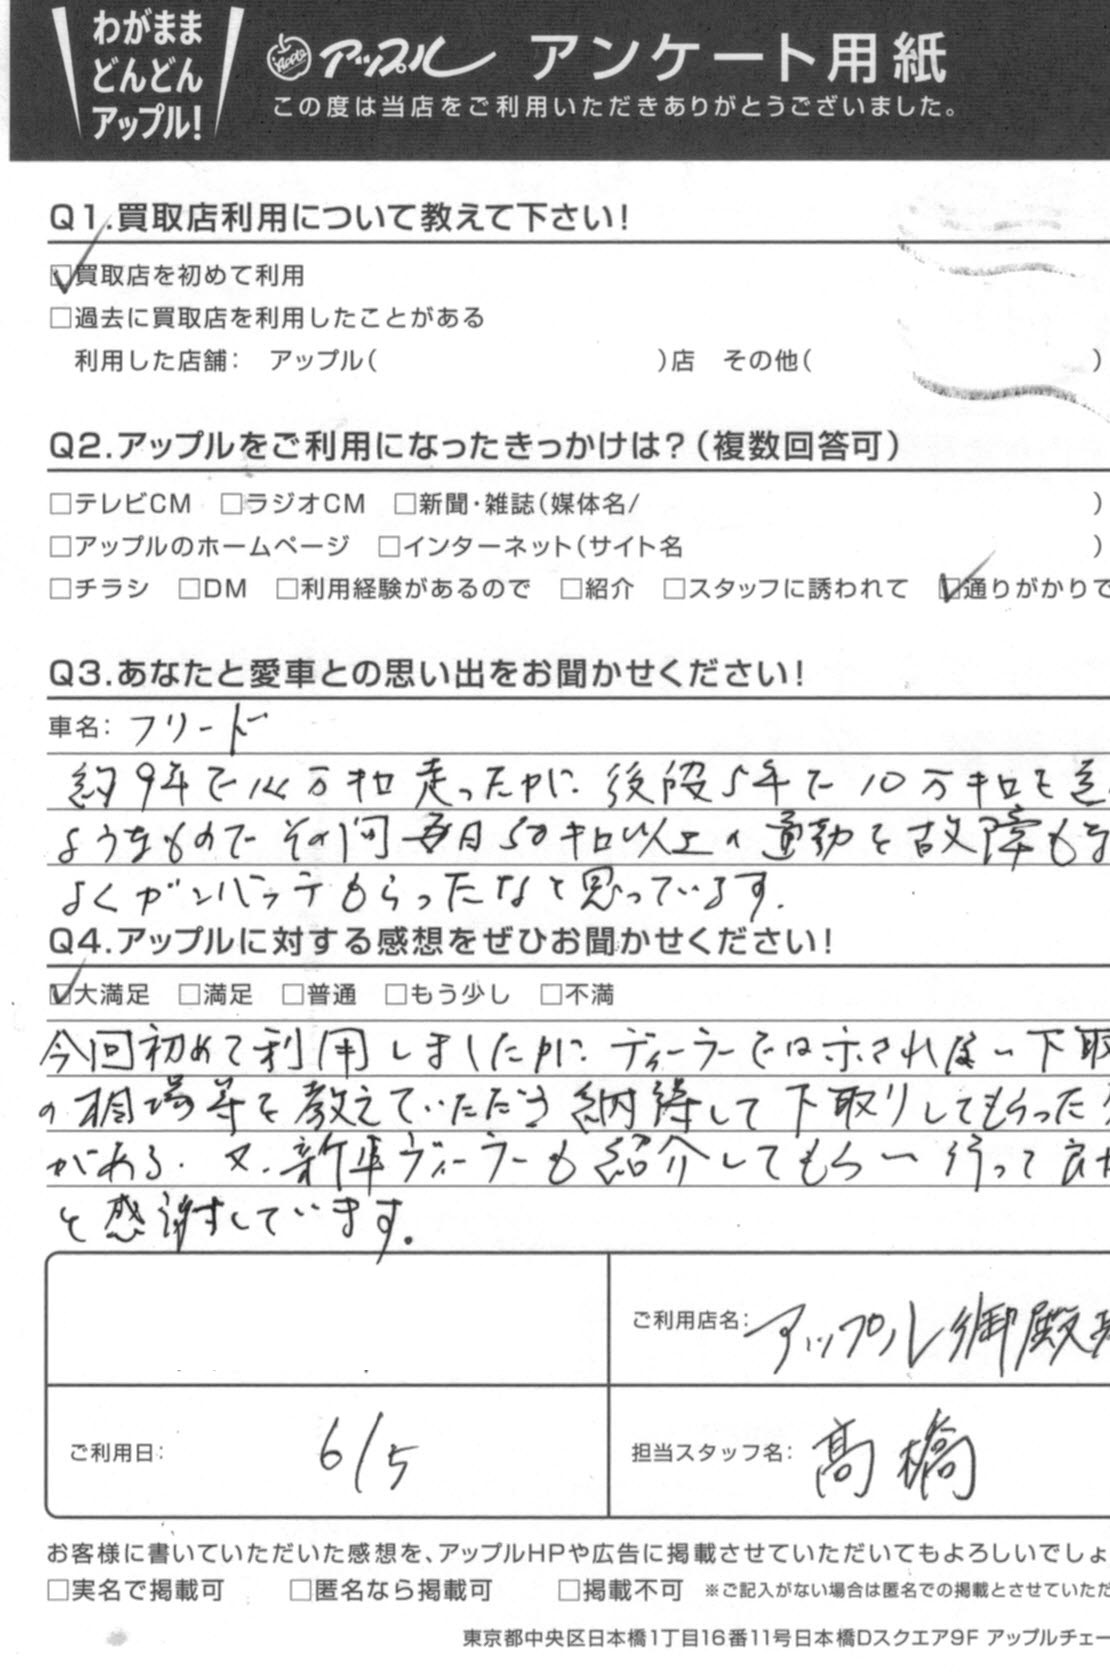 わがまま
どんどん
アップル!
Apple アップル アンケート用紙
この度は当店をご利用いただきありがとうございました。
Q1.買取店利用について教えて下さい!
□買取店を初めて利用
□過去に買取店を利用したことがある
利用した店舗: アップル( )店 その他( )
Q2.アップルをご利用になったきっかけは?(複数回答可)
□テレビCM □ラジオCM □新聞・雑誌(媒体名/ )
□アップルのホームページ □インターネット(サイト名 )
□チラシ □DM □利用経験があるので □紹介 □スタッフに誘われて □通りがかりで
Q3.あなたと愛車との思い出をお聞かせください!
車名: フリード
約9年で 万キロ 走ったが 後段5年で10万キロを
ようなもので その間 毎日50キロ以上の通勤を故障もな
よくガンバッテもらったなと思っています.
Q4.アップルに対する感想をぜひお聞かせください!
□大満足 □満足 □普通 □もう少し □不満
今回初めて利用しましたが ディーラーでは示されない下取
の相場等を教えていただき納得して下取りしてもらった
がある. 又、新車ディーラーも紹介してもらい行って良か
と感謝しています。
ご利用店名: アップル御殿場
ご利用日: 6/5
担当スタッフ名: 高橋
お客様に書いていただいた感想を、アップルHPや広告に掲載させていただいてもよろしいでしょ
□実名で掲載可 □匿名なら掲載可 □掲載不可 ※ご記入がない場合は匿名での掲載とさせていただ
東京都中央区日本橋1丁目16番11号日本橋Dスクエア9F アップルチェー